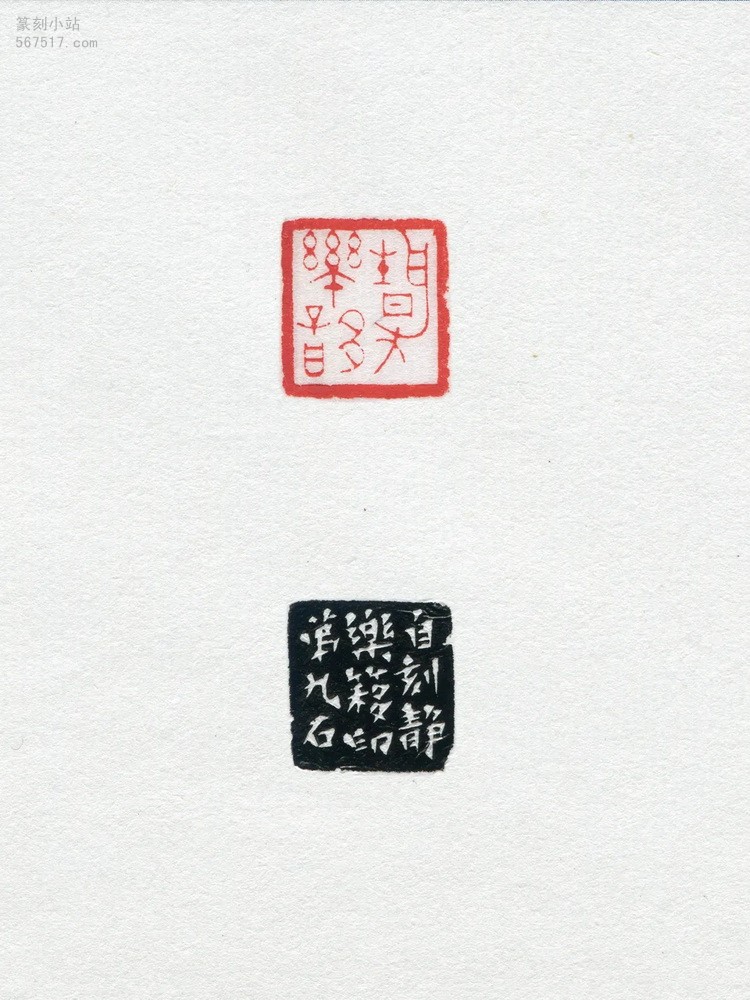 篆刻小站
567517.com
静
樂誃
自刻静
樂簃印
第九石